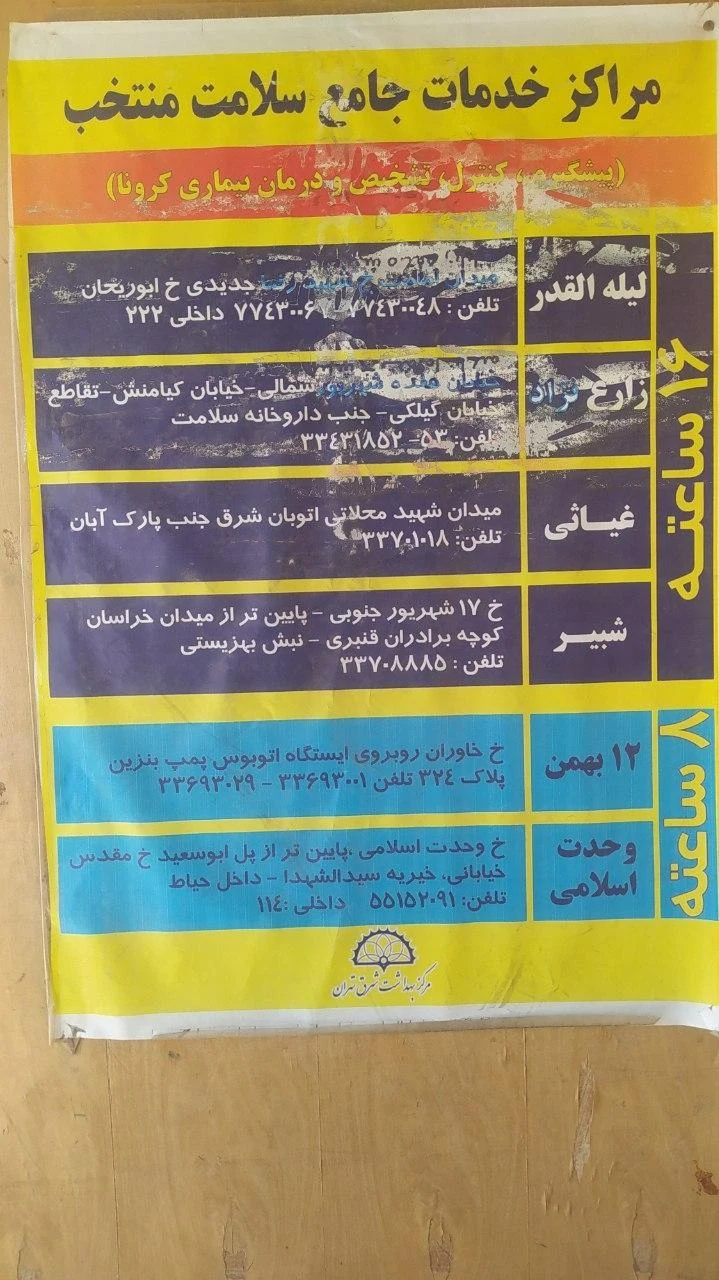 مراکز خدمات جامع سلامت منتخب
(پیشگیری، کنترل، تشخیص و درمان بیماری کرونا)
۱۶ ساعته
لیله القدر
میدان امامت خ شهید رضا جدیدی خ ابوریحان
تلفن : ۷۷۴۳۰۰۴۸ ۷۷۴۳۰۰۶ داخلی ۲۲۲
زارع نژاد
خیابان هفده شهریور شمالی-خیابان کیامنش-تقاطع
خیابان گیلکی- جنب داروخانه سلامت
تلفن: ۵۳- ۳۳۴۳۱۸۵۲
غیاثی
میدان شهید محلاتی اتوبان شرق جنب پارک آبان
تلفن: ۳۳۷۰۱۰۱۸
شبیر
خ ۱۷ شهریور جنوبی - پایین تر از میدان خراسان
کوچه برادران قنبری - نبش بهزیستی
تلفن : ۳۳۷۰۸۸۸۵
۸ ساعته
۱۲ بهمن
خ خاوران روبروی ایستگاه اتوبوس پمپ بنزین
پلاک ۳۲۴ تلفن ۳۳۶۹۳۰۰۱ - ۳۳۶۹۳۰۲۹
وحدت
اسلامی
خ وحدت اسلامی ،پایین تر از پل ابوسعید خ مقدس
خیابانی، خیریه سیدالشهدا - داخل حیاط
تلفن: ۵۵۱۵۲۰۹۱ داخلی :۱۱۴
مرکز بهداشت شرق تهران